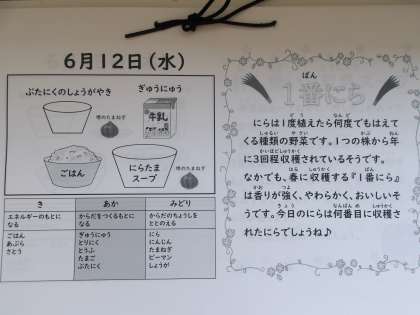 6月12日(水)
ぶたにくのしょうがやき
ぎゅうにゅう
牛乳
ごはん
にらたま
スープ
き
あか
みどり
エネルギーのもとに
なる
からだをつくるもとに
なる
からだのちょうしを
ととのえる
ごはん
あぶら
さとう
ぎゅうにゅう
とりにく
とうふ
たまご
ぶたにく
にら
にんじん
たまねぎ
ピーマン
しょうが
1番にら
にらは1度植えたら何度でもはえて
くる種類の野菜です。1つの株から年
に3回程収穫されているそうです。
なかでも、春に収穫する『1番にら』
は香りが強く、やわらかく、おいしいそ
うです。今日のにらは何番目に収穫さ
れたにらでしょうね♪